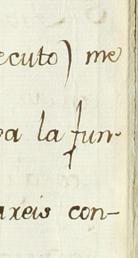 ecuto) me
va la fun-
axeis con-